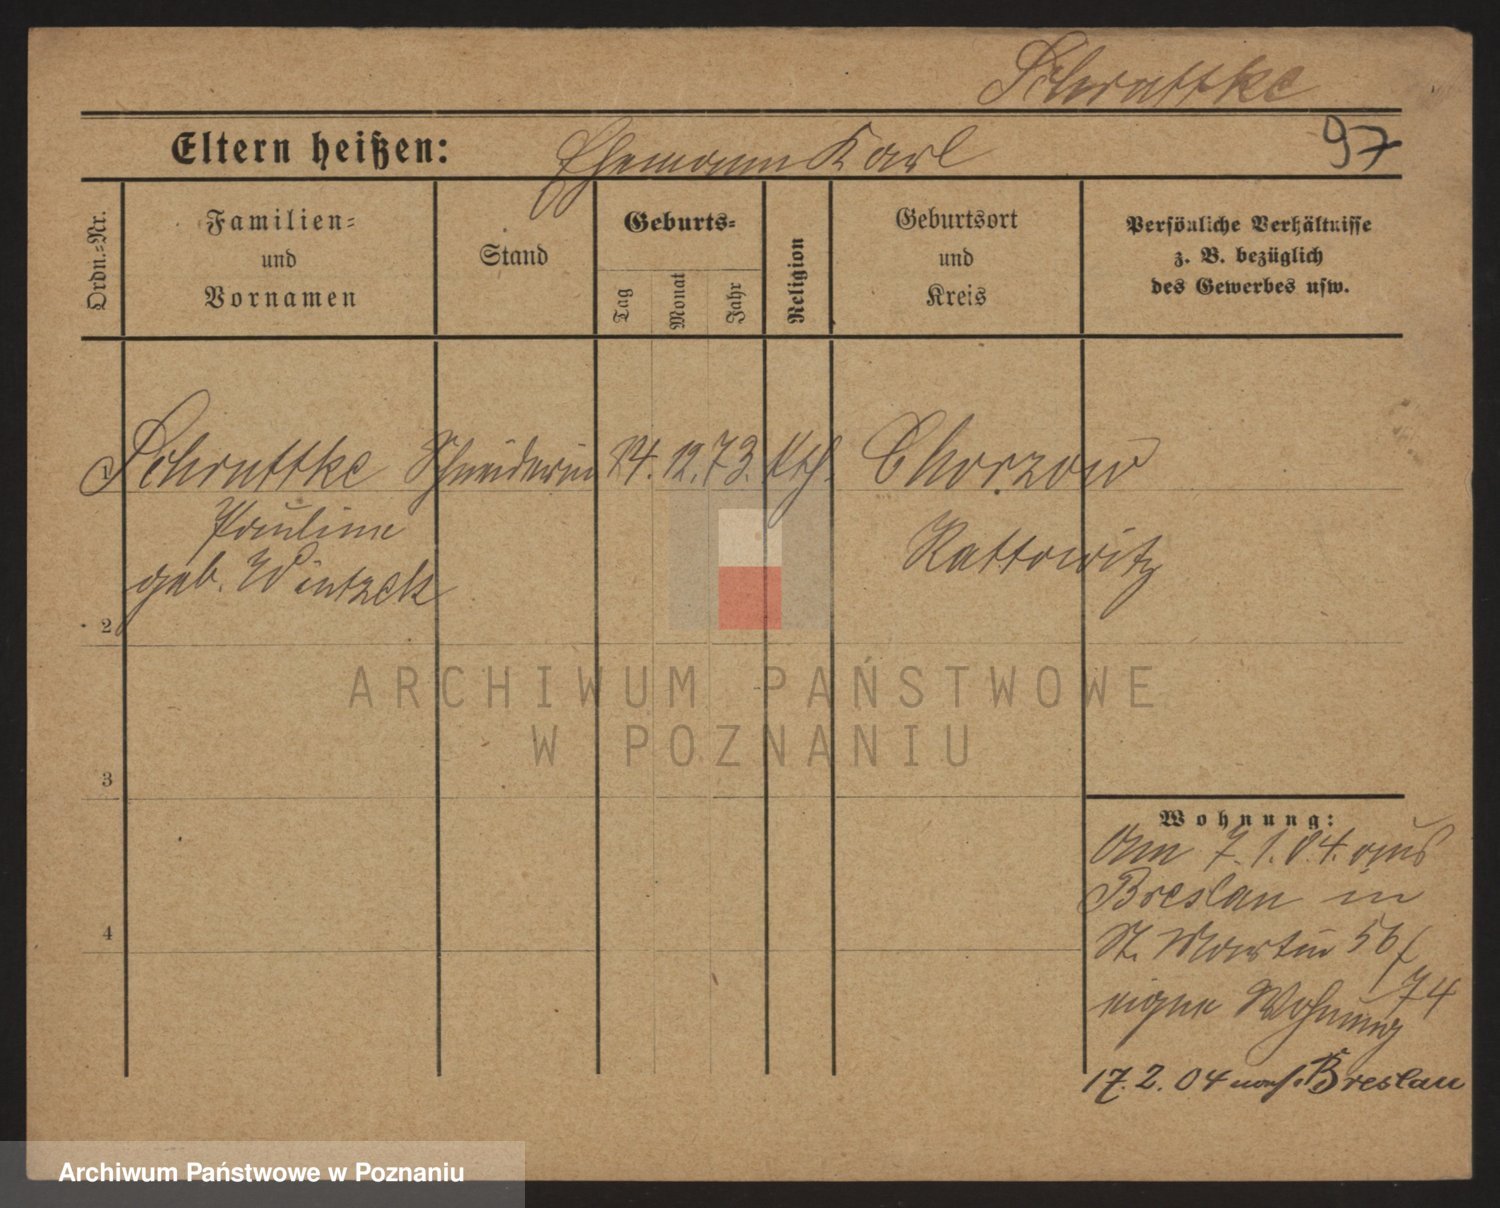 Schruttke
Eltern heißen: Ehemann Karl 97
Ordn.=Nr.
Familien=
und
Vornamen
Stand
Geburts=
Tag
Monat
Jahr
Religion
Geburtsort
und
Kreis
Persönliche Verhältnisse
z. B. bezüglich
des Gewerbes usw.
Schruttke Schneiderin 24. 12. 73. kth. Chorzow
Pauline Kattowitz
geb. Wintzek
2
3
4
Wohnung:
Am 7.1.04. aus
Breslau in
St. Martin 56/
74
eigne Wohnung
17.2.04 nach Breslau
ARCHIWUM PAŃSTWOWE
W POZNANIU
Archiwum Państwowe w Poznaniu